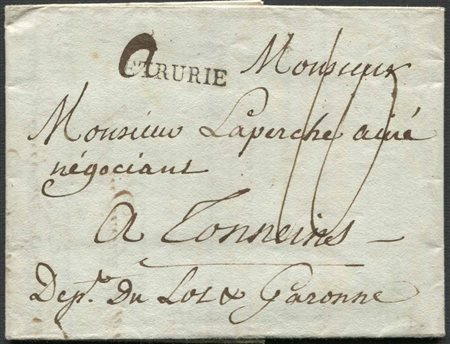 ETRURIE
Monsieur
Monsieur Laperche ainé
négociant
A Tonneins
Dep.t Du Lot & Garonne